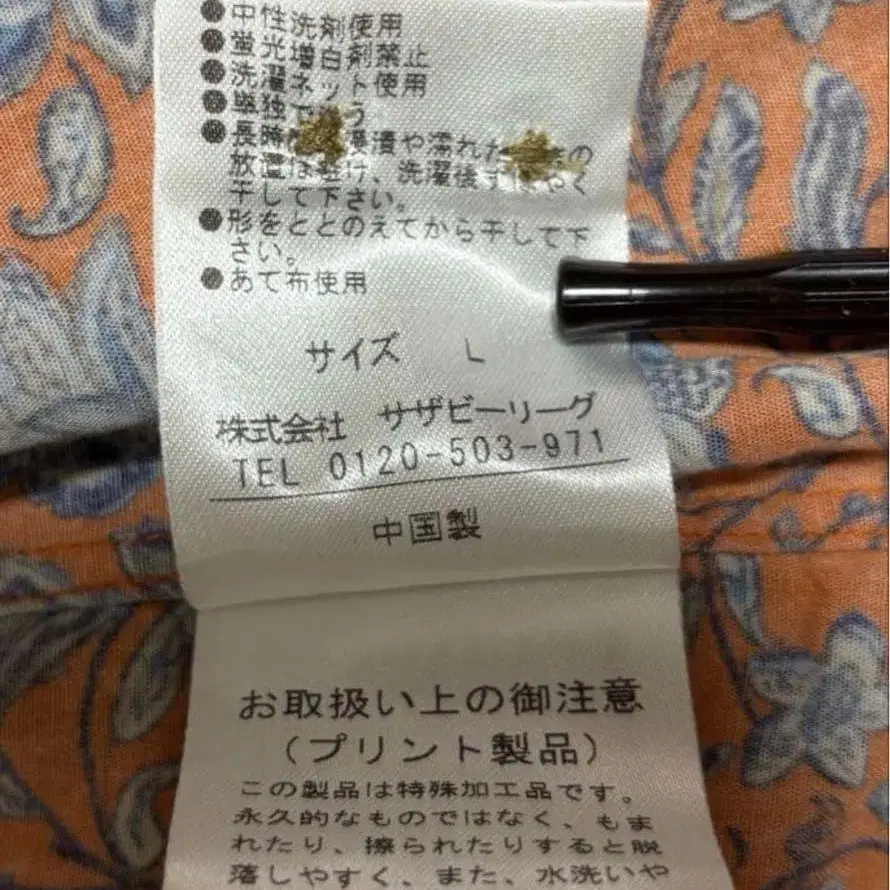 ●中性洗剤使用
●蛍光増白剤禁止
●洗濯ネット使用
●単独で う
●長時 浸漬や濡れた の
放置は避け、洗濯後す やく
干して下さい。
●形をととのえてから干して下
さい。
●あて布使用
サイズ L
株式会社 サザビーリーグ
TEL 0120-503-971
中国製
お取扱い上の御注意
（プリント製品）
この製品は特殊加工品です。
永久的なものではなく、もま
れたり、擦られたりすると脱
落しやすく、また、水洗いや